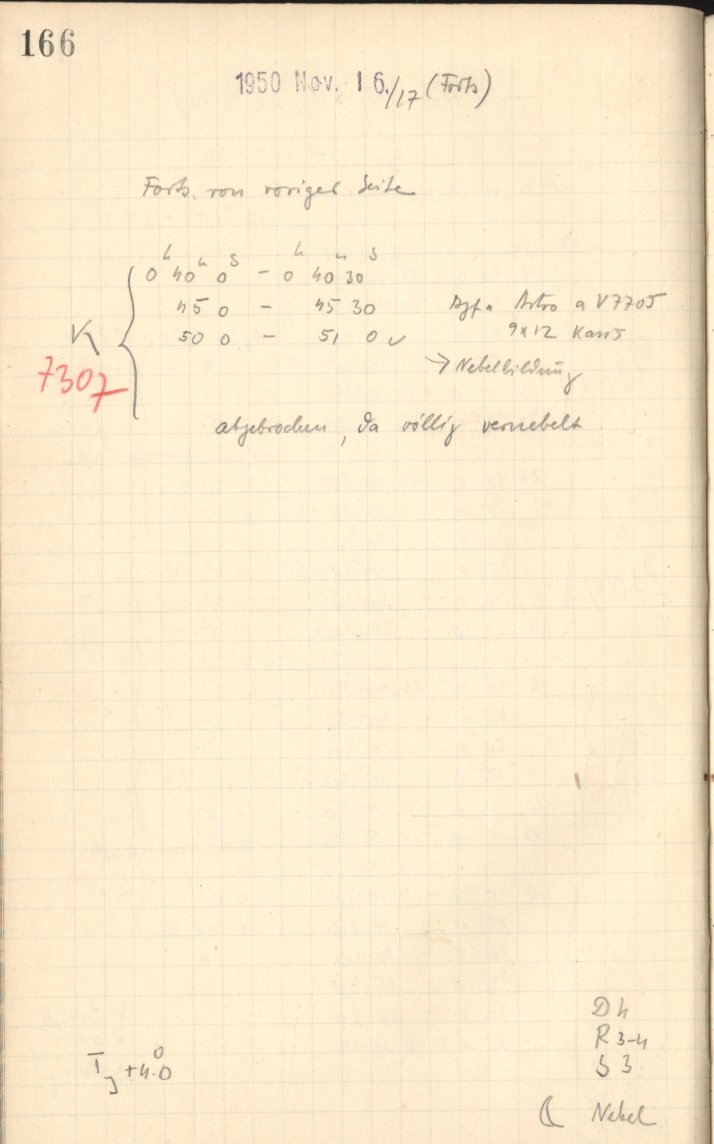 166
1950 Nov. 16./17 (Forts)
Forts. von voriger Seite
h m s h m s
0 40 0 - 0 40 30
45 0 - 45 30 Agfa Astro a V7705
K 50 0 - 51 0 ✓ 9x12 Kass
7307 → Nebelbildung
abgebrochen, da völlig vernebelt
D 4
R 3-4
T +4.0 S 3
☾ Nebel